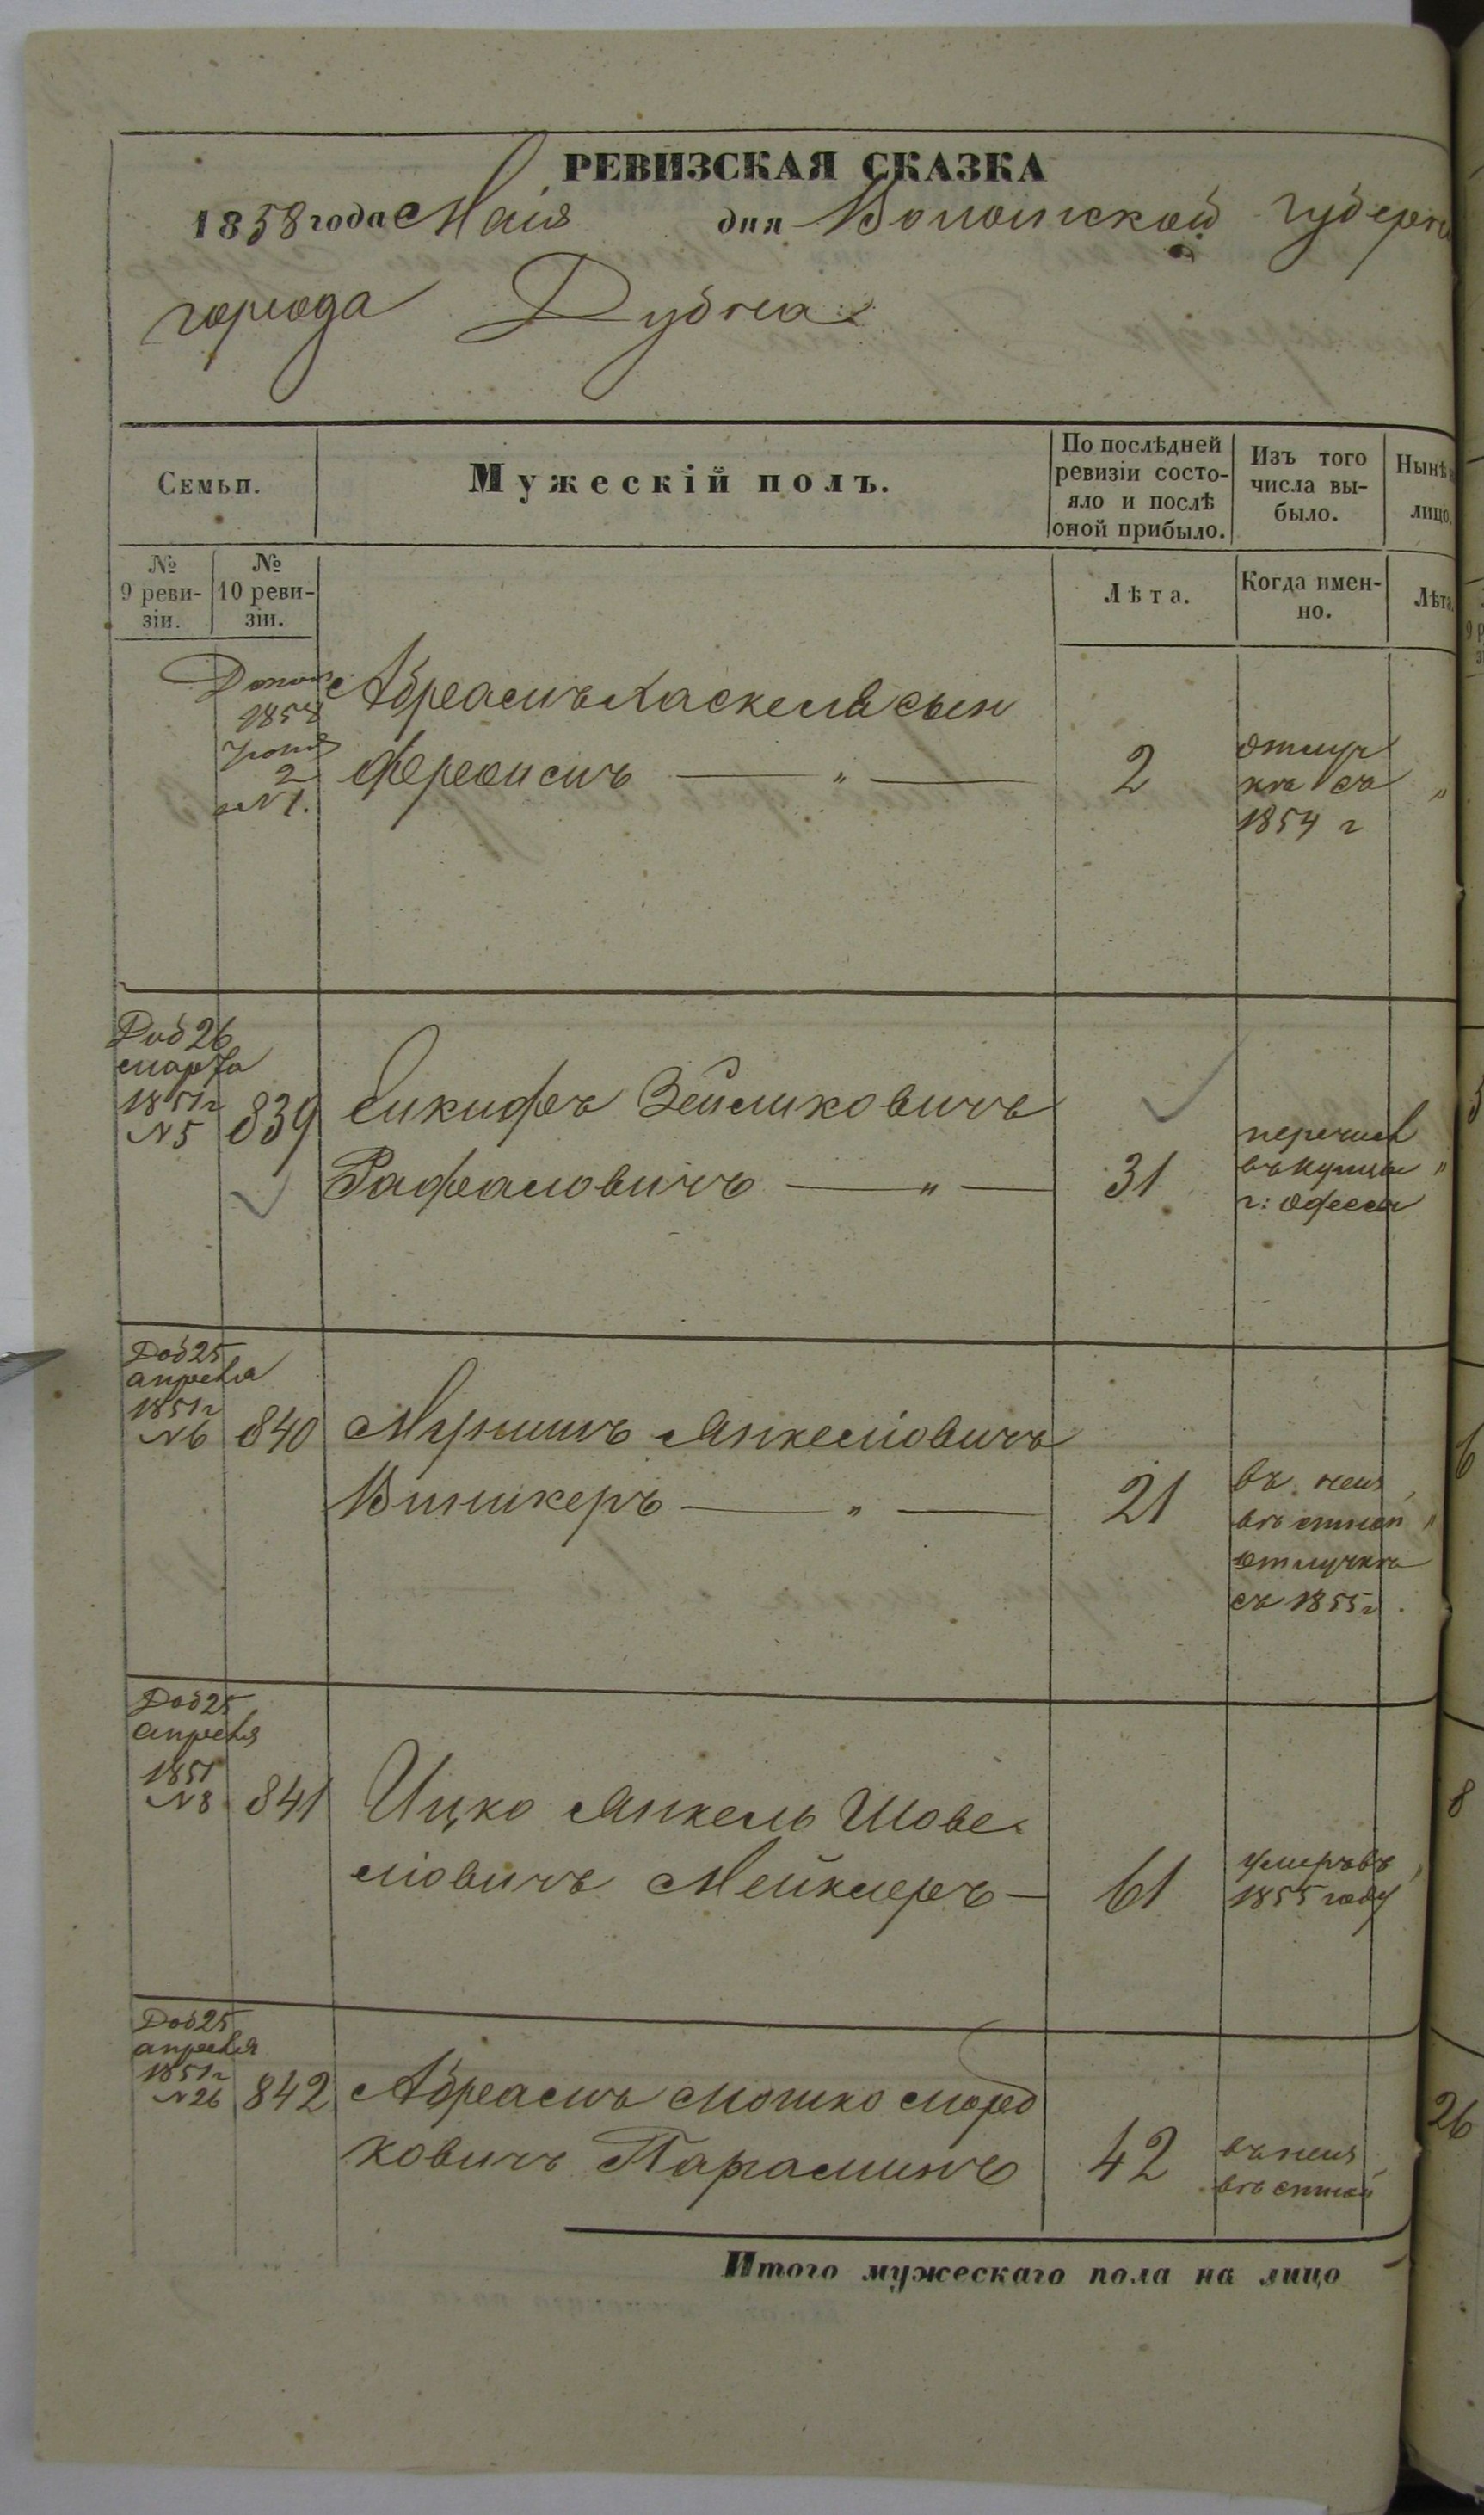 РЕВИЗСКАЯ СКАЗКА
1858 года Маія дня Волынской Губерн
города Дубна
Семьи.
Мужескій полъ.
По послѣдней
ревизіи состо-
яло и послѣ
оной прибыло.
Изъ того
числа вы-
было.
Нынѣ
лицо.
№
9 реви-
зіи.
№
10 реви-
зіи.
Лѣта.
Когда имен-
но.
Лѣта.
1858
2
№ 1.
Абрамъ Хаскель сын
2
отлуч
кѣ съ
1854 г
Доб 26
марта
1851 г
№ 5
839
Зейликовичъ
Рафаловичъ — " —
31
перечисл
въ купцы "
г: Одессы
Доб 25
апреля
1851 г
№ 6
840
Янкелiовичъ
Виникеръ — " —
21
въ неиз
вѣстной "
отлучкѣ
съ 1855 г.
Доб 25
апреля
1851
№ 8
841
Ицко Янкель Шове
лiовичъ Мейклеръ —
61
умеръ въ
1855 году
Доб 25
апреля
1851 г
№ 26
842
Абрамъ Мошко Морд
ковичъ
42
въ неиз
вѣстной
Итого мужескаго пола на лицо
6
8
26